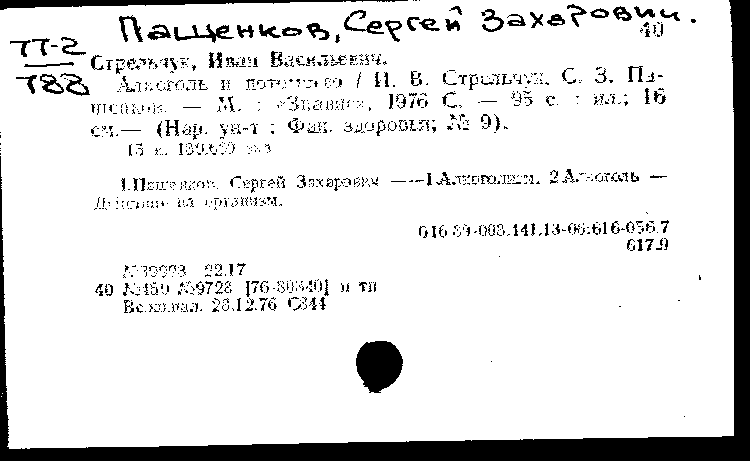 Пащенков, Сергей Захарович.
ТТ-2
788
40
Стрельчук, Иван Васильевич.
Алкоголь и потомство / И. В. Стрельчук, С. З. Па-
щенков. — М. : «Знание», 1976 С. — 95 с. : ил.; 16
см.— (Нар. ун-т : Фак. здоровья; № 9).
15 к.
1.Пащенков, Сергей Захарович ——1.Алкоголизм. 2.Алкоголь —
Действие на организм.
616.89-008.441.13-06:616-056.7
617.9
22.17
40 №9728 [76-80340] п тп
Всесоюзн. 28.12.76 С844